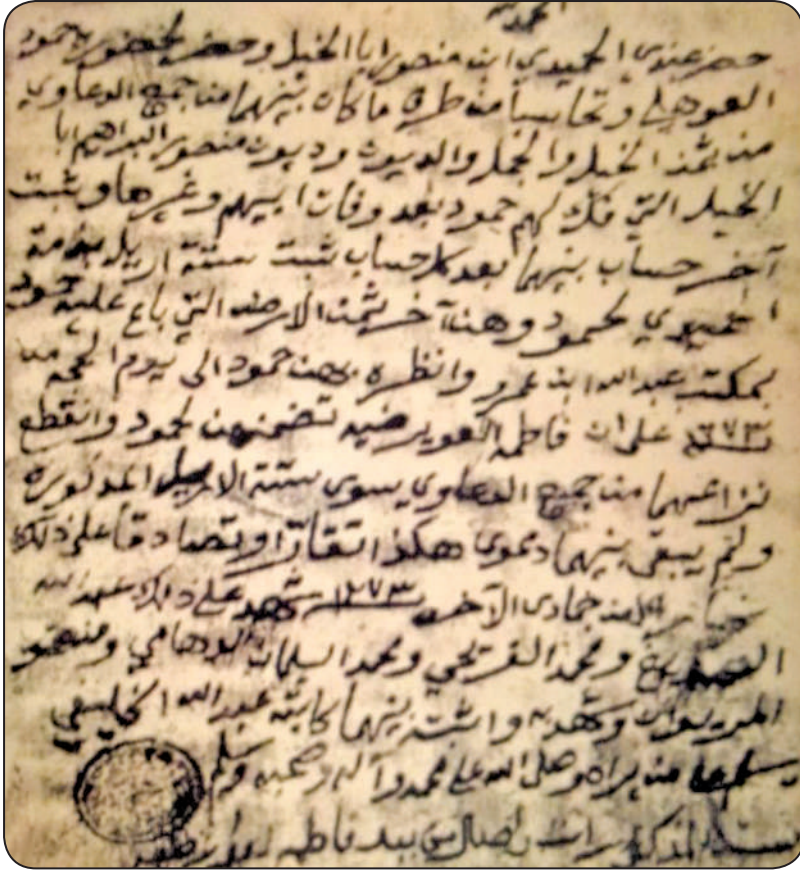 الحمد لله
حضر عندي الحميدي ابن منصور ابا الخيل وحضر لحضوره حمود
العوهلي وتحاسبا من طرف ما كان بينهما من جميع الدعاوي
من ثمن الخيل والجمل والديون وديون منصور البراهيم ابا
الخيل التي فك لهم حمود بعد وفات ابيهم وغيرها وثبت
آخر حساب بينهما بعد كل حساب ثبت ستة اريل بذمة
الحميدي لحمود وهن آخر ثمن الارض التي باع عليه حمود
بمكتب عبدالله ابن عمرو وانظره بهن حمود الى يوم
١٢٧٣ على ان فاطمه العويرضيه تضمنهن لحمود وانقطع
نزاعهما من جميع الدعاوي سوى ستة الاريل المذكوره
ولم يبقى بينهما دعوى هكذا تقارا وتصادقا على ذلك
من جمادى الآخر ١٢٧٣ شهد على ذلك عبدالله
ومحمد الفريحي ومحمد السليمان الوهابي ومنصور
وشهد به واثبته بينهما كاتبه عبدالله الخليفي
من يراه وصلى الله على محمد وآله وصحبه وسلم
الاريل المذكورات بيد فاطمه